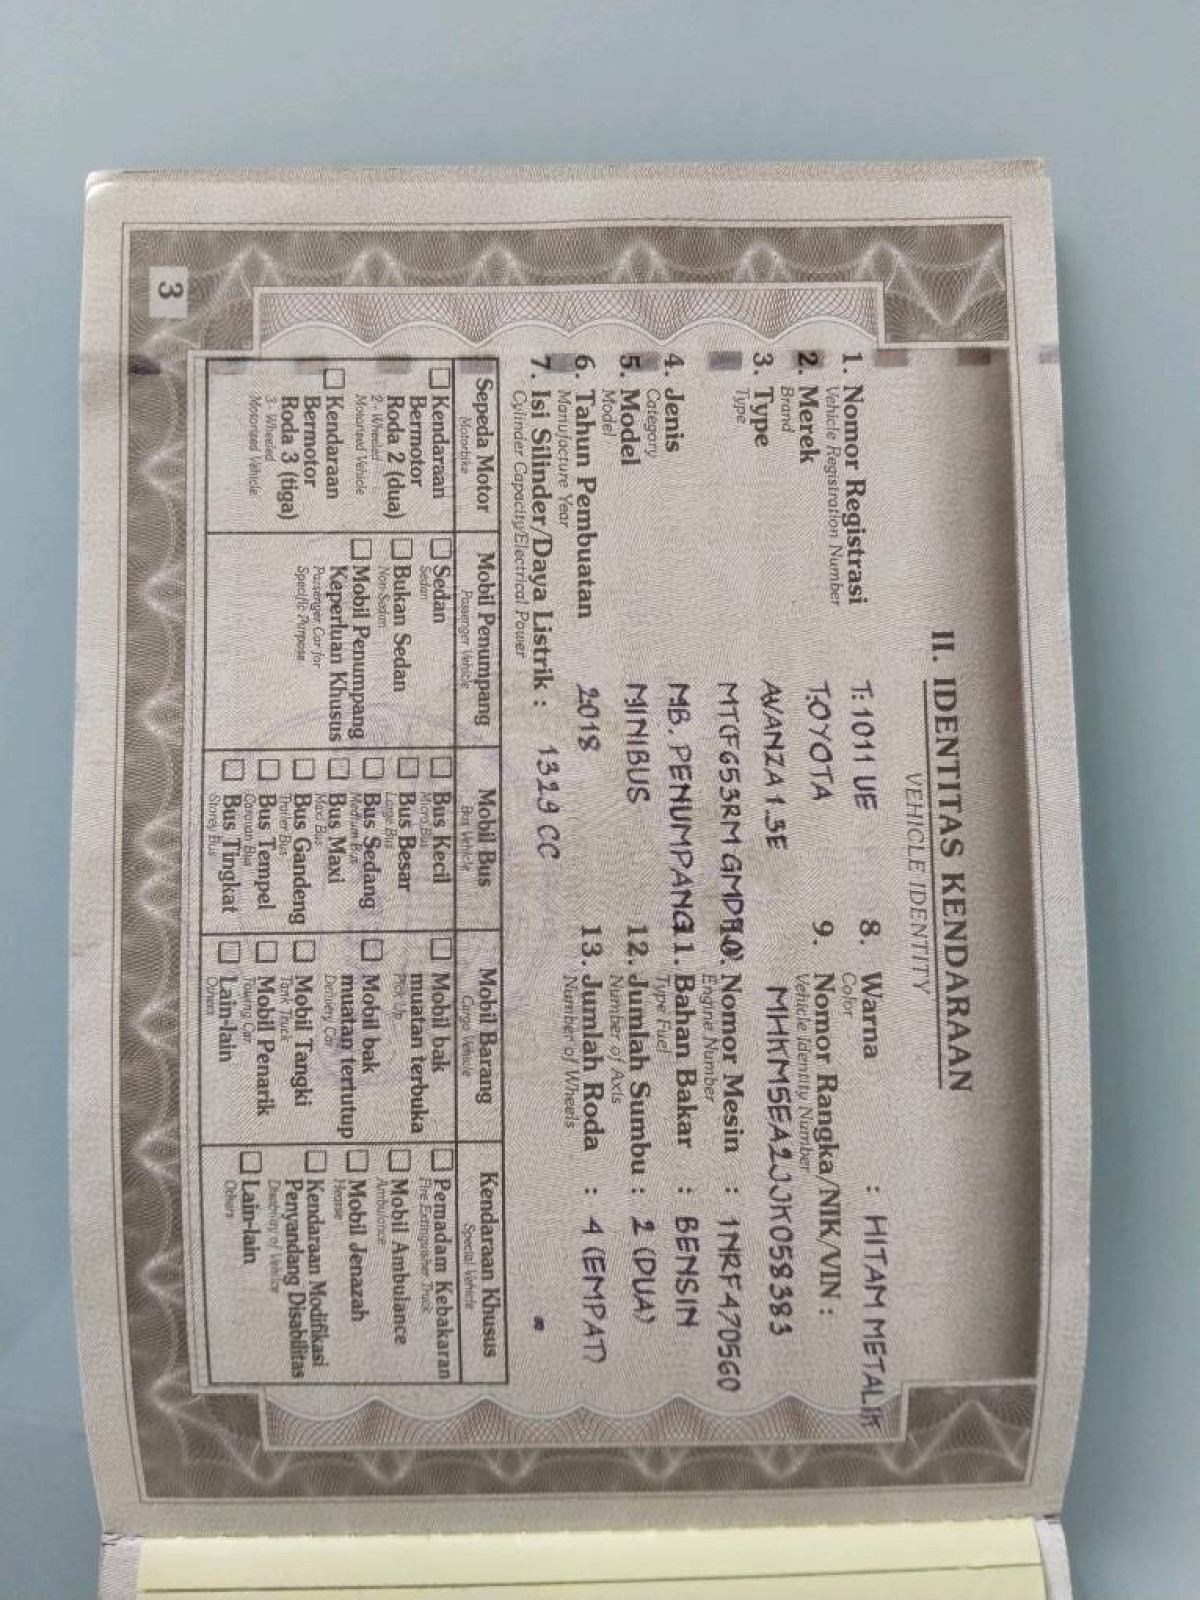 II. IDENTITAS KENDARAAN
VEHICLE IDENTITY
1. Nomor Registrasi : T.1011 UE
Vehicle Registration Number
2. Merek : TOYOTA
Brand
3. Type AVANZA 1.3E
Type MT(F653RM GMD
4. Jenis MB. PENUMPANG
Category
5. Model MINIBUS
Model
6. Tahun Pembuatan 2018
Manufacture Year
7. Isi Silinder/Daya Listrik : 1329 CC
Cylinder Capacity/Electrical Power
8. Warna : HITAM METALIK
Color
9. Nomor Rangka/NIK/VIN :
Vehicle Identity Number
MHKM5EA2JJK058383
10. Nomor Mesin : 1NRF470560
Engine Number
11. Bahan Bakar : BENSIN
Type Fuel
12. Jumlah Sumbu : 2 (DUA)
Number of Axis
13. Jumlah Roda : 4 (EMPAT)
Number of Wheels
Sepeda Motor
Motorbike
Kendaraan
Bermotor
Roda 2 (dua)
2 - Wheeled
Motorized Vehicle
Kendaraan
Bermotor
Roda 3 (tiga)
3- Wheeled
Motorized Vehicle
Mobil Penumpang
Passenger Vehicle
Sedan
Sedan
Bukan Sedan
Non-Sedan
Mobil Penumpang
Keperluan Khusus
Passenger Car for
Specific Purpose
Mobil Bus
Bus Vehicle
Bus Kecil
Micro Bus
Bus Besar
Large Bus
Bus Sedang
Medium Bus
Bus Maxi
Maxi Bus
Bus Gandeng
Trailer Bus
Bus Tempel
Caravan Bus
Bus Tingkat
Storey Bus
Mobil Barang
Cargo Vehicle
Mobil bak
muatan terbuka
Pick Up
Mobil bak
muatan tertutup
Delivery Car
Mobil Tangki
Tank Truck
Mobil Penarik
Towing Car
Lain-lain
Others
Kendaraan Khusus
Special Vehicle
Pemadam Kebakaran
Fire Extinguisher Truck
Mobil Ambulance
Ambulance
Mobil Jenazah
Hearse
Kendaraan Modifikasi
Penyandang Disabilitas
Disability of Vehicle
Lain-lain
Others
3